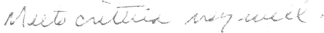 Meets criteria very well.